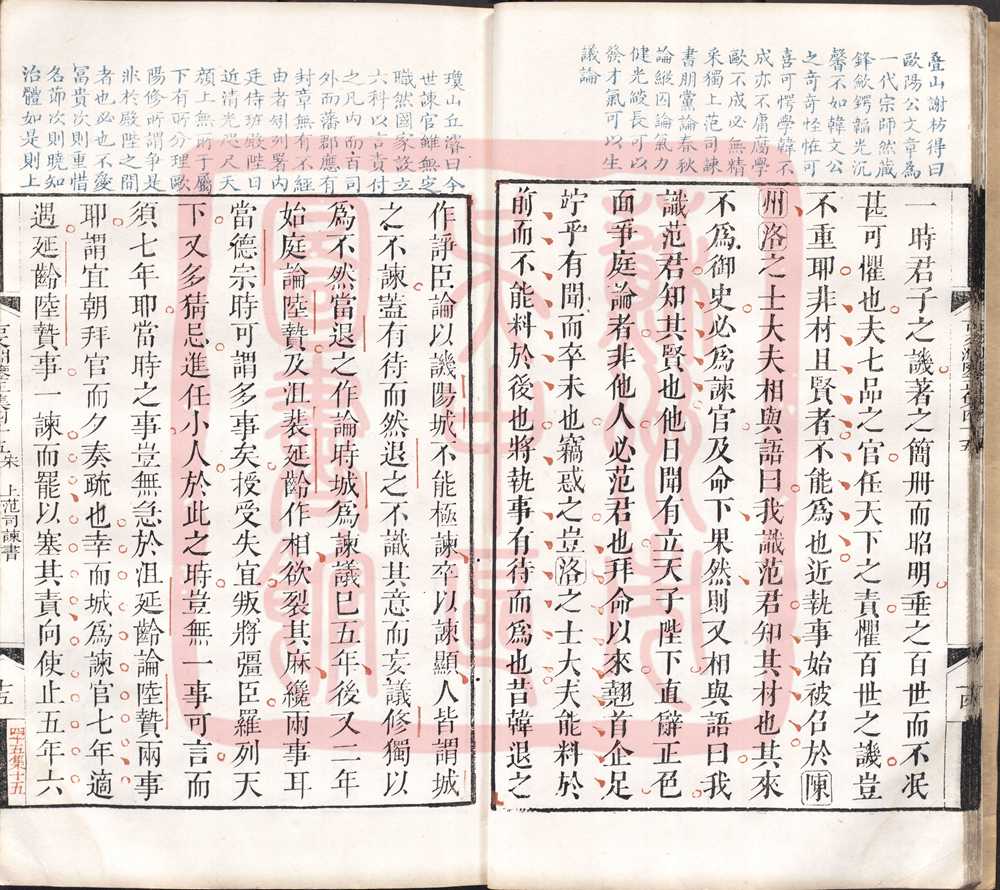 疊山謝枋得曰
歐陽公文章為
一代宗師然藏
鋒斂鍔韜光沉
馨不如韓文公
之奇奇怪怪可
喜可愕學韓不
成亦不庸腐學
歐不成必無精
采獨上范司諫
書朋黨論春秋
論縱囚論氣力
健光燄長可以
發才氣可以生
議論
一時君子之譏著之簡冊而昭明垂之百世而不泯
甚可懼也夫七品之官任天下之責懼百世之譏豈
不重耶非材且賢者不能為也近執事始被召於陳
州洛之士大夫相與語曰我識范君知其材也其來
不為御史必為諫官及命下果然則又相與語曰我
識范君知其賢也他日聞有立天子陛下直辭正色
面爭庭論者非他人必范君也拜命以來翹首企足
竚乎有聞而卒未也竊惑之豈洛之士大夫能料於
前而不能料於後也將執事有待而為也昔韓退之
瓊山丘濬曰今
世諫官雖無定
職然國家設立
六科以言責付
之凡內而百司
外而藩郡應有
封章無有不經
由者列署內
廷侍班殿陛日
近清光咫尺天
顏上無所于屬
下有所分理歐
陽修所謂爭是
非於殿陛之間
者也必也不愛
富貴次則重惜
名節次則曉知
治體如是則上
作諍臣論以譏陽城不能極諫卒以諫顯人皆謂城
之不諫蓋有待而然退之不識其意而妄議修獨以
為不然當退之作論時城為諫議已五年後又二年
始庭論陸贄及沮裴延齡作相欲裂其麻纔兩事耳
當德宗時可謂多事矣授受失宜叛將彊臣羅列天
下又多猜忌進任小人於此之時豈無一事可言而
須七年耶當時之事豈無急於沮延齡論陸贄兩事
耶謂宜朝拜官而夕奏疏也幸而城為諫官七年適
遇延齡陸贄事一諫而罷以塞其責向使止五年六
上范司諫書
四十五集十五